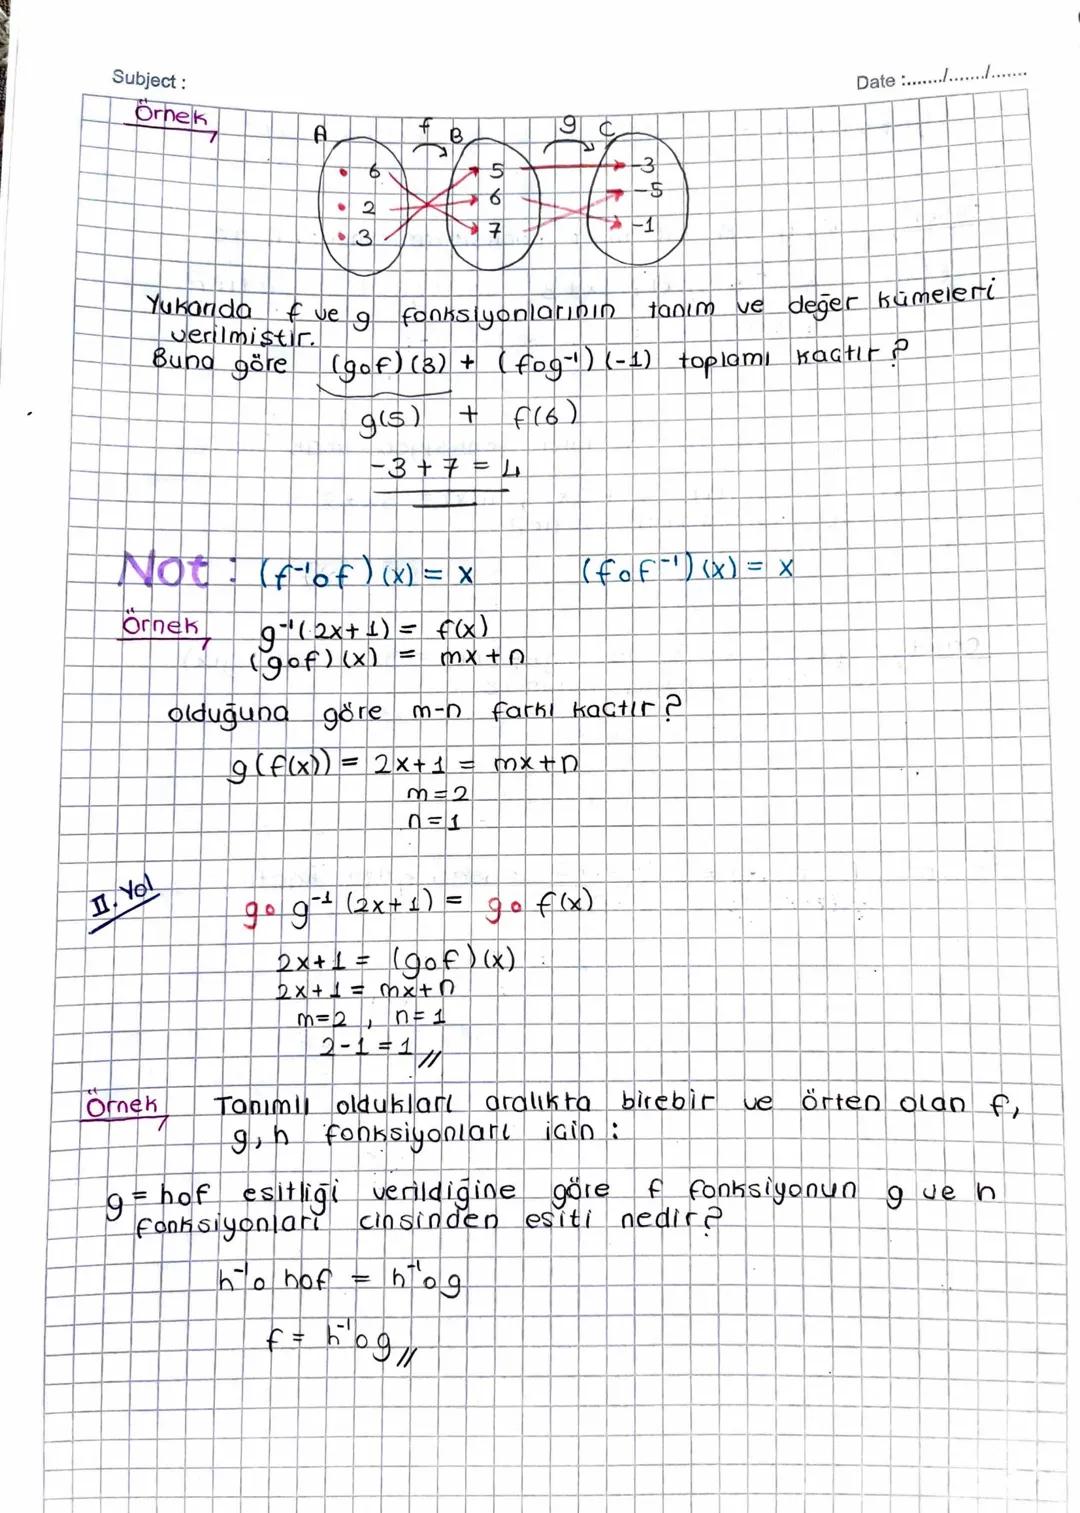 Subject :
Date :......./......./.......
Örnek,
A f B g C
6 5 -3
2 6 -5
3 7 -1
Yukarıda f ve g fonksiyonlarının tanım ve değer kümeleri
verilmiştir.
Buna göre (gof)(3) + (fog⁻¹)(-1) toplamı kaçtır?
g(5) + f(6)
-3 + 7 = 4
Not : (f⁻¹of)(x) = x (fof⁻¹)(x) = x
Örnek, g⁻¹(2x+1) = f(x)
(gof)(x) = mx+n
olduğuna göre m-n farkı kaçtır?
g(f(x)) = 2x+1 = mx+n
m=2
n=1
II. Yol
go g⁻¹(2x+1) = go f(x)
2x+1 = (gof)(x)
2x+1 = mx+n
m=2, n=1
2-1=1//
Örnek, Tanımlı oldukları aralıkta birebir ve örten olan f,
g, h fonksiyonları için :
g = hof eşitliği verildiğine göre f fonksiyonun g ve h
fonksiyonları cinsinden eşiti nedir?
h⁻¹o hof = h⁻¹og
f = h⁻¹og//